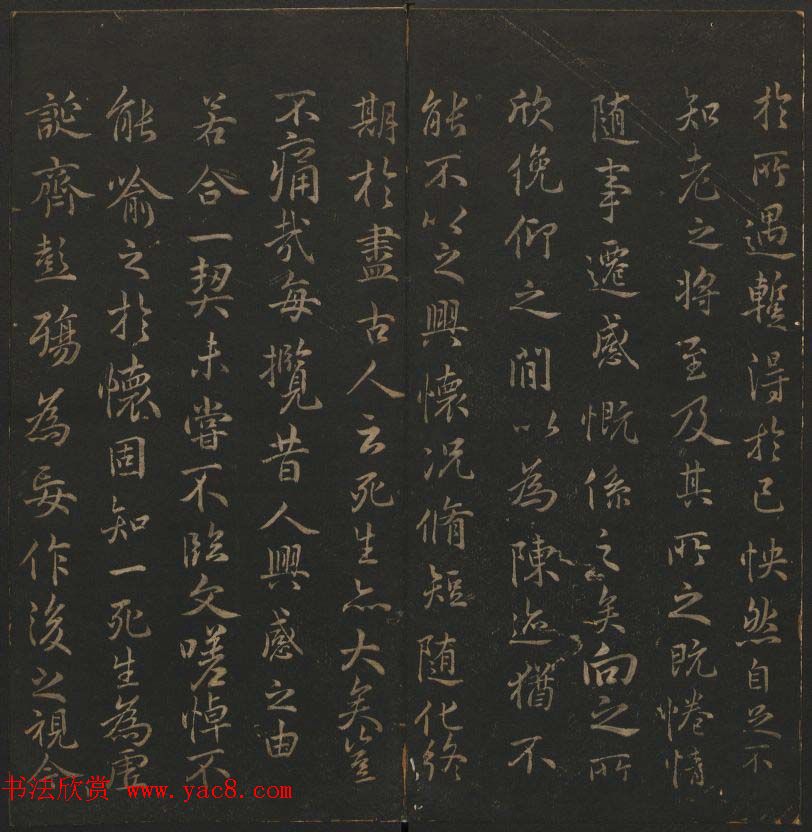 於所遇蹔得於己怏然自足不
知老之將至及其所之既惓情
隨事遷感慨係之矣向之所
欣俛仰之閒以為陳迹猶不
能不以之興懷況脩短隨化終
期於盡古人云死生亦大矣豈
不痛哉每攬昔人興感之由
若合一契未嘗不臨文嗟悼不
能喻之於懷固知一死生為虛
誕齊彭殤為妄作後之視今
书法欣赏 www.yac8.com